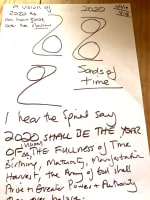 A Vision of
2020 AS
2020
Sands of
Time
I hear the Spirit say
2020 SHALL BE THE YEAR
OF THE FULLNESS OF Time
Birthing, Maturity, Manifestation
Harvest, the Army of God shall
Arise in Greater Power & Authority
than ever before